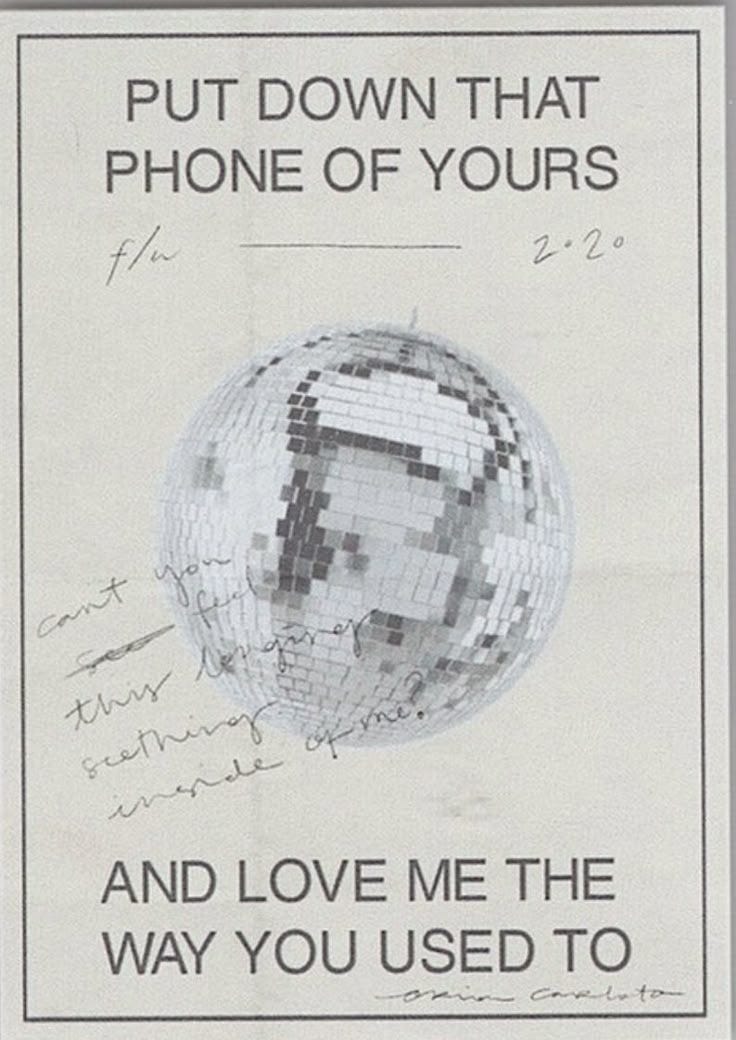 PUT DOWN THAT
PHONE OF YOURS
f/w 2•20
can't you
see feel
this longing
seething
inside of me?
AND LOVE ME THE
WAY YOU USED TO
orion carloto